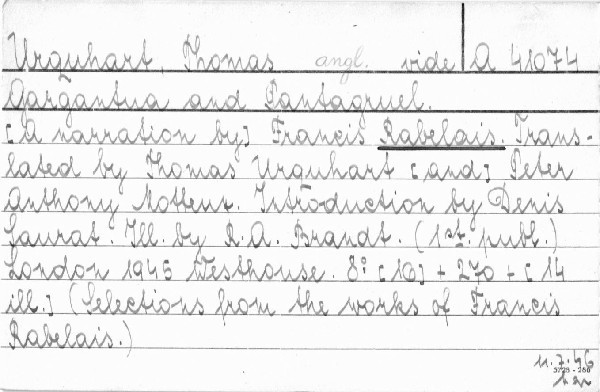 Urquhart, Thomas angl. vide A 41074
Gargantua and Pantagruel.
[A narration by] Francis Rabelais. Trans-
lated by Thomas Urquhart [and] Peter
Anthony Motteux. Introduction by Denis
Saurat. Ill. by R.A. Brandt. (1st. publ.)
London 1945 Westhouse. 8° [10] + 270 + [14
ill.] (Selections from the works of Francis
Rabelais.)
11.7.46